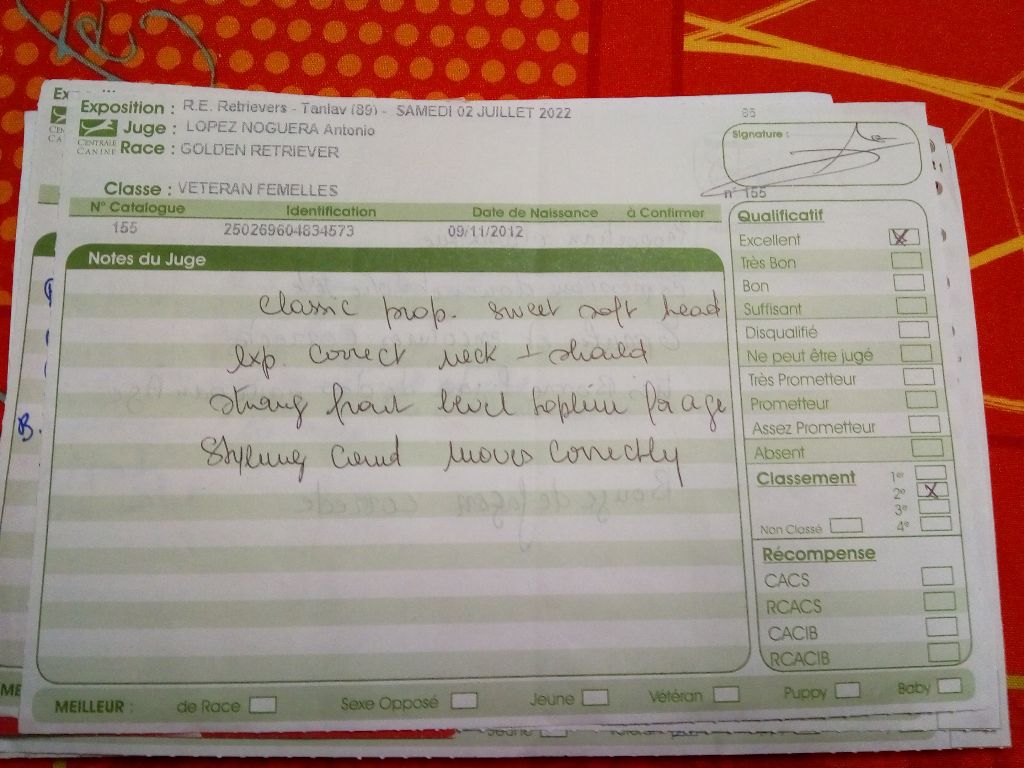 Exposition : R.E. Retrievers - Tanlay (89) - SAMEDI 02 JUILLET 2022
85
CENTRALE CANINE
Juge : LOPEZ NOGUERA Antonio
Race : GOLDEN RETRIEVER
Signature :
Classe : VETERAN FEMELLES
n° 155
N° Catalogue Identification Date de Naissance à Confirmer
155 250269604834573 09/11/2012
Notes du Juge
classic prop. sweet soft head
exp. correct neck + should
strong front level topline for age
moves correctly
Qualificatif
Excellent X
Très Bon
Bon
Suffisant
Disqualifié
Ne peut être jugé
Très Prometteur
Prometteur
Assez Prometteur
Absent
Classement 1er
2e X
3e
Non Classé 4e
Récompense
CACS
RCACS
CACIB
RCACIB
MEILLEUR : de Race Sexe Opposé Jeune Vétéran Puppy Baby